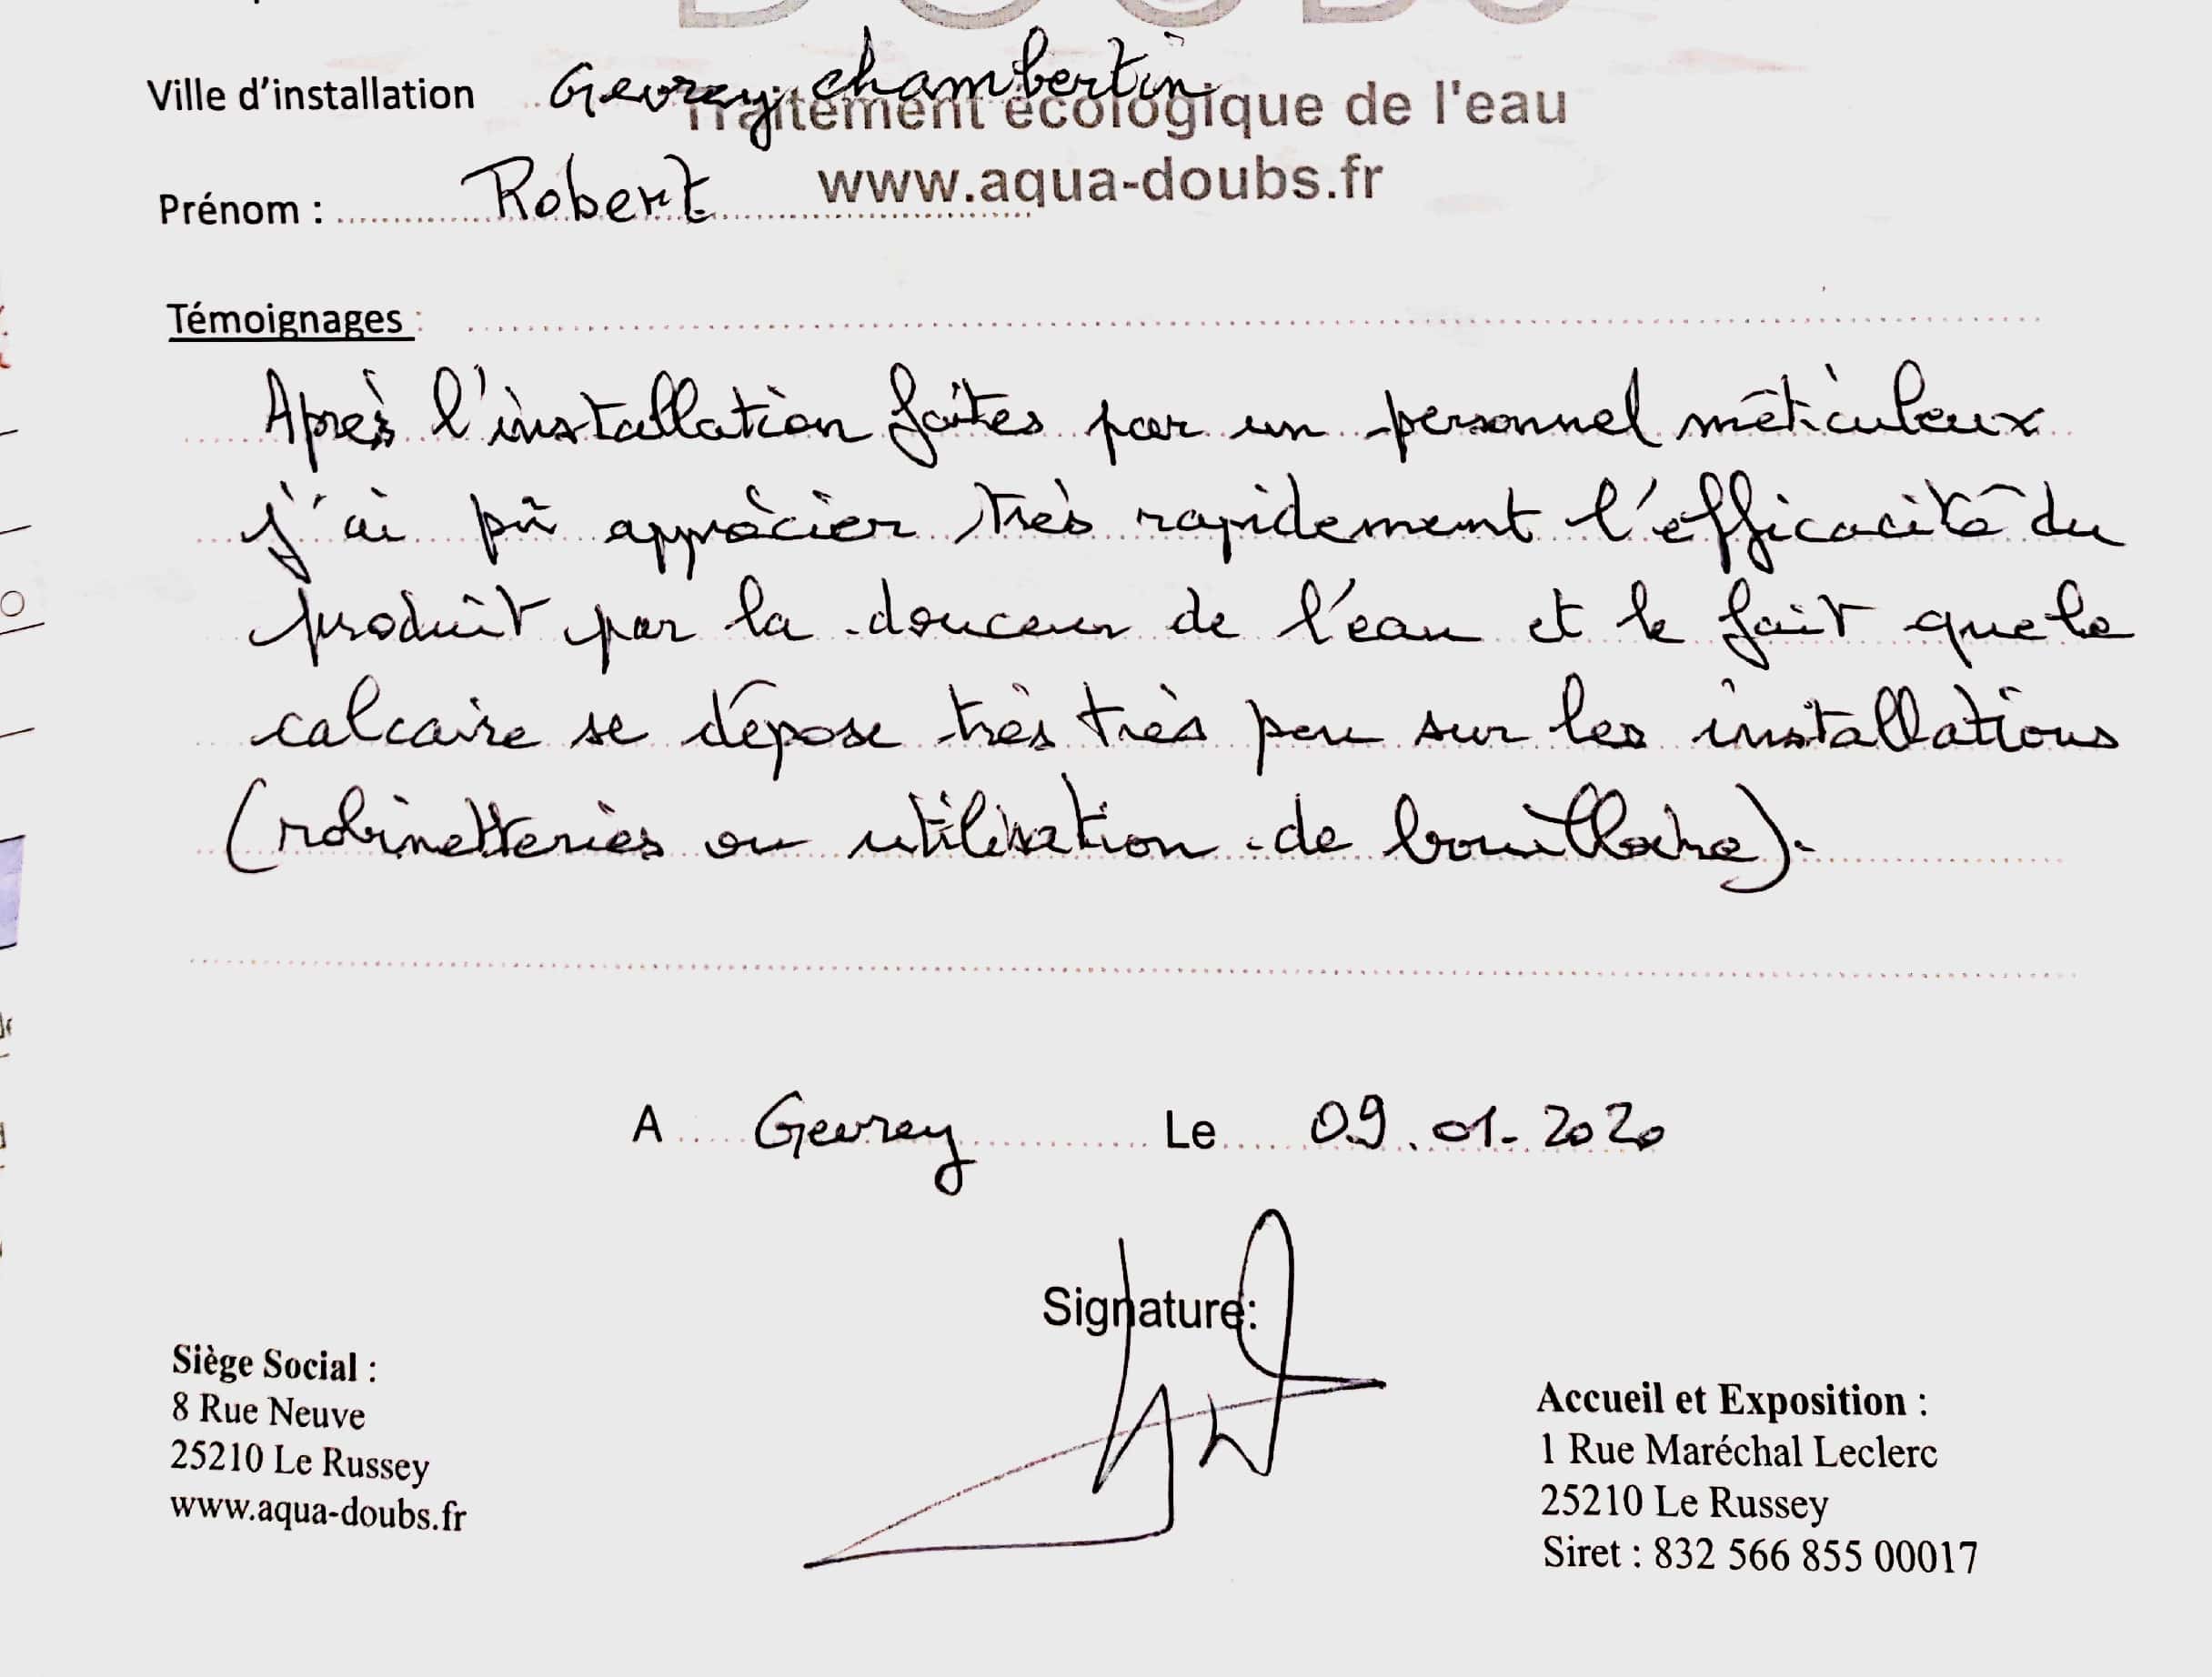 DOUBS
Ville d'installation Gevrey chambertin
Traitement écologique de l'eau
www.aqua-doubs.fr
Prénom : Robert
Témoignages :
Après l'installation faites par un personnel méticuleux
j'ai pû apprécier très rapidement l'efficacité du
produit par la douceur de l'eau et le fait que le
calcaire se dépose très très peu sur les installations
(robinetteries ou utilisation de bouilloire).
A Gevrey Le 09.01-2020
Signature:
Siège Social :
8 Rue Neuve
25210 Le Russey
www.aqua-doubs.fr
Accueil et Exposition :
1 Rue Maréchal Leclerc
25210 Le Russey
Siret : 832 566 855 00017